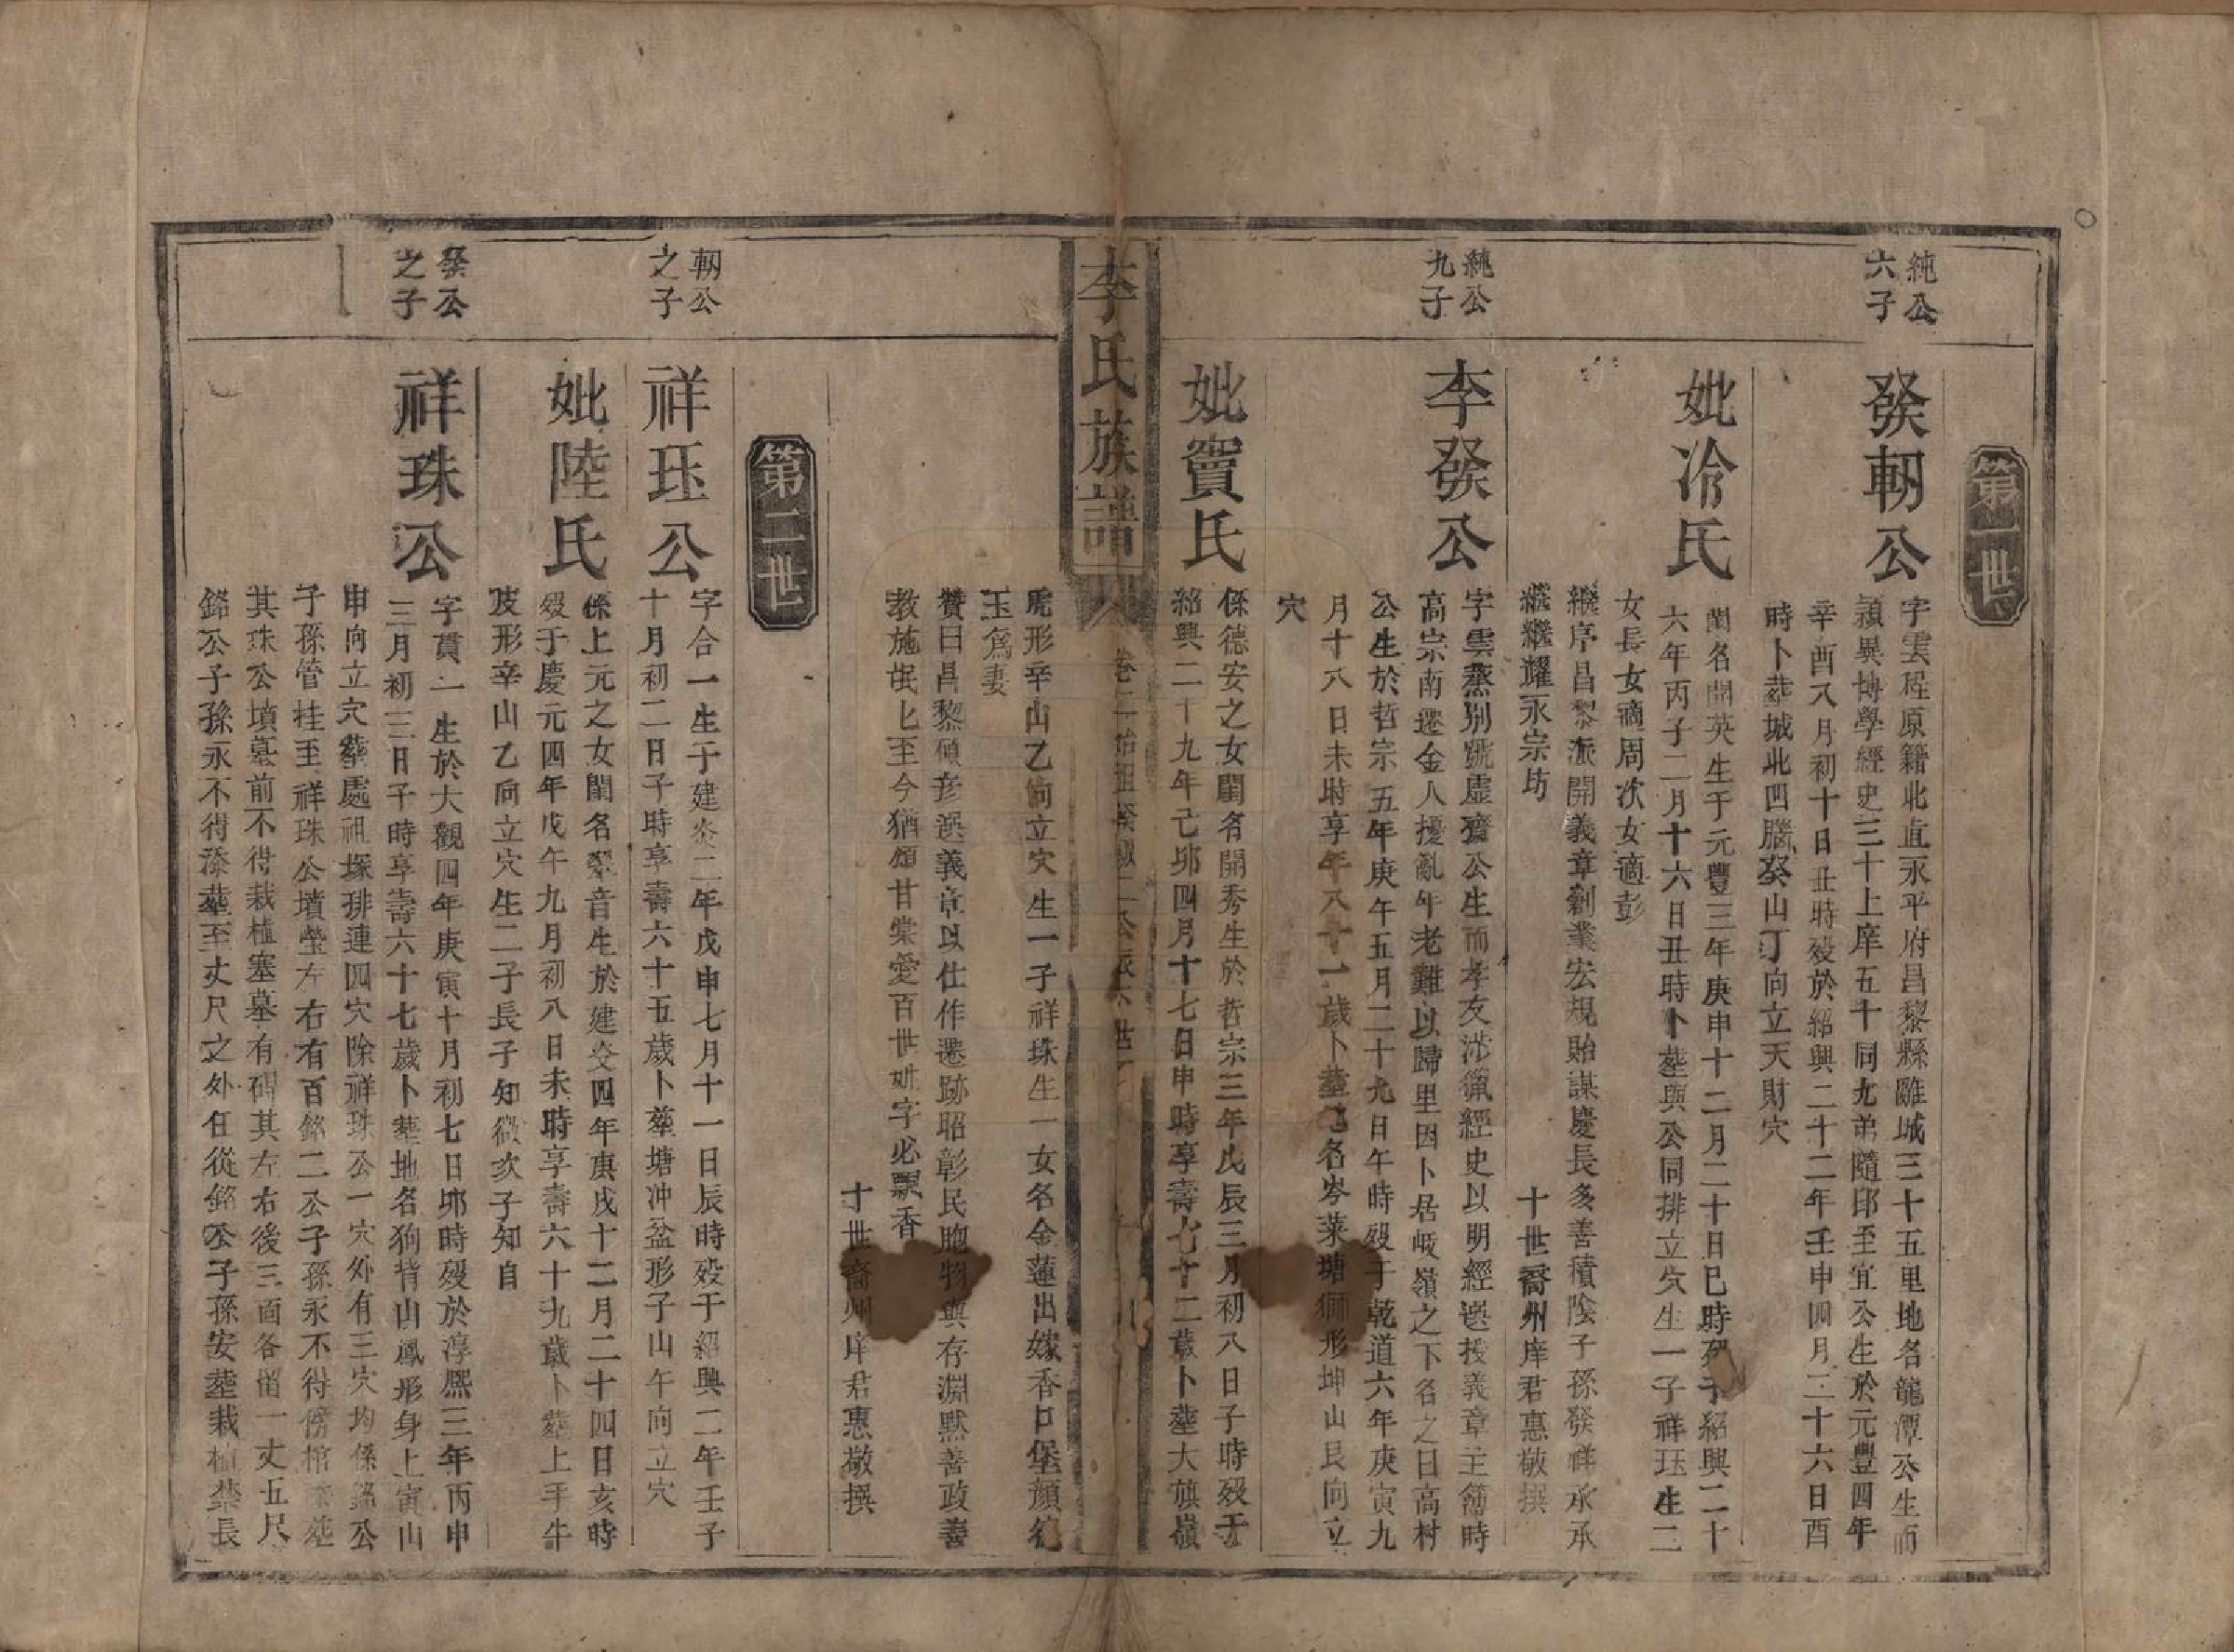 第一世
純公
六子
發軔公
字雲程原籍北直永平府昌黎縣離城三十五里地名龍潭公生而
穎異博學經史三十上庠五十同九弟隨郎至宜公生於元豐四年
辛酉八月初十日丑時歿於紹興二十二年壬申四月二十六日酉
時卜塟城北四腦癸山丁向立天財穴
妣冷氏
閨名開英生于元豐三年庚申十二月二十日巳時歿于紹興二十
六年丙子二月十六日丑時卜塟與公同排立穴生一子祥珏生二
女長女適周次女適彭
縱序昌黎派開義章創業宏規貽謀慶長多善積陰子孫發祥承承
繼繼耀永宗坊
十世裔州庠君惠敬撰
純公
九子
李發公
字雲蒸別號虛齋公生而孝友涉獵經史以明經選授義章主簿時
高宗南遷金人擾亂年老難以歸里因卜居岐嶺之下名之曰高村
公生於哲宗五年庚午五月二十九日午時歿于乾道六年庚寅九
月十八日未時享年八十一歲卜塟地名岑萊塘獅形坤山艮向立
穴
妣竇氏
係德安之女閨名開秀生於哲宗三年戊辰三月初八日子時歿于
紹興二十九年己卯四月十七日申時享壽七十二歲卜塟大旗嶺
李氏族譜
卷二
虎形辛山乙向立穴生一子祥珠生一女名金蓮出嫁香口堡顏
玉爲妻
贊曰昌黎碩彦義章以仕作遷跡昭彰民胞物與存淵默善政善
教施氓七至今猶頌甘棠愛百世姓字必飄香
十世裔州庠君惠敬撰
第二世
軔公
之子
祥珏公
字合一生于建炎二年戊申七月十一日辰時歿于紹興二年壬子
十月初二日子時享壽六十五歲卜塟塘冲盆形子山午向立穴
妣陸氏
係上元之女閨名翠音生於建炎四年庚戌十二月二十四日亥時
歿于慶元四年戊午九月初八日未時享壽六十九歲卜塟上手牛
皮形辛山乙向立穴生二子長子知微次子知自
發公
之子
祥珠公
字貫一生於大觀四年庚寅十月初七日卯時歿於淳熙三年丙申
三月初三日子時享壽六十七歲卜塟地名狗背山鳳形身上寅山
申向立穴塟處祖塚排連四穴除祥珠公一穴外有三穴均係銘公
子孫管桂至祥珠公墳塋左右有百銘二公子孫永不得傍棺塟
其珠公墳墓前不得栽植塞墓有碑其左右後三面各留一丈五尺
銘公子孫永不得添塟至丈尺之外任從銘公子孫安塟栽植禁長